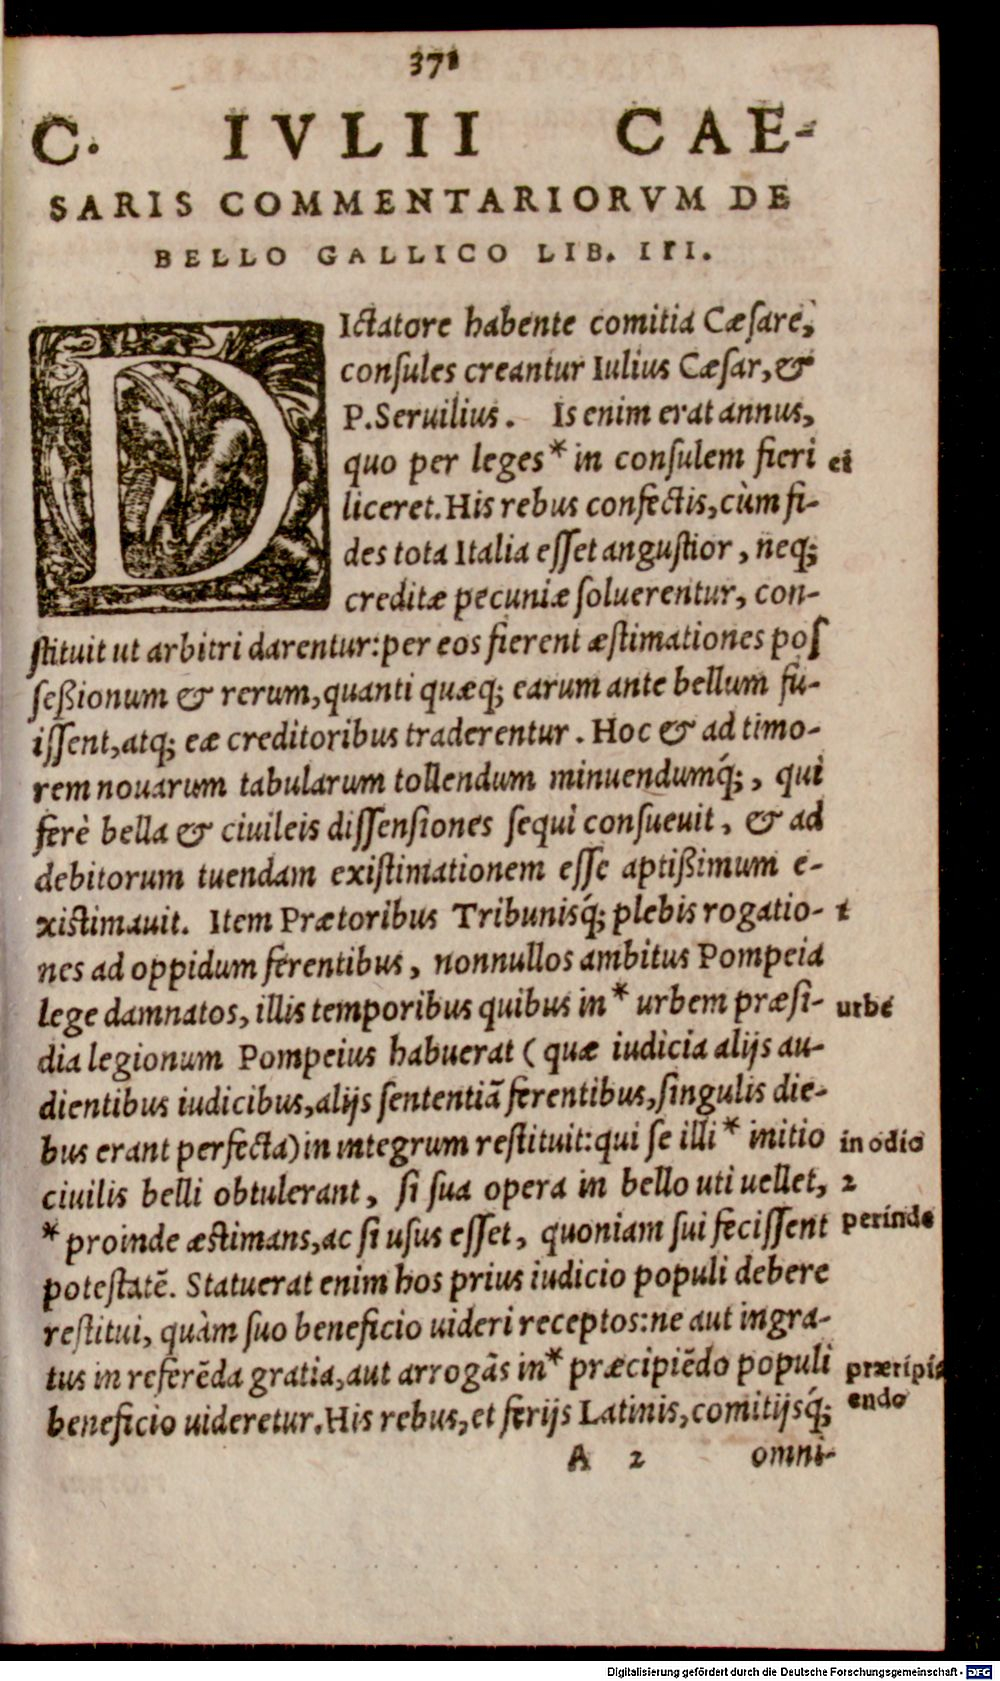 371
C. IVLII CAE-
SARIS COMMENTARIORVM DE
BELLO GALLICO LIB. III.
DIctatore habente comitia Cæſare,
conſules creantur Iulius Cæſar, &
P. Seruilius. Is enim erat annus,
quo per leges * in conſulem fieri ei
liceret. His rebus confectis, cùm fi-
des tota Italia eſſet anguſtior, neq;
creditæ pecuniæ ſoluerentur, con-
ſtituit ut arbitri darentur: per eos fierent æſtimationes poſ
ſeßionum & rerum, quanti quæq; earum ante bellum fu-
iſſent, atq; eæ creditoribus traderentur. Hoc & ad timo-
rem nouarum tabularum tollendum minuendumq́;, qui
ferè bella & ciuileis diſſenſiones ſequi conſueuit, & ad
debitorum tuendam exiſtimationem eſſe aptißimum e-
xiſtimauit. Item Prætoribus Tribunisq́; plebis rogatio- 1
nes ad oppidum ferentibus, nonnullos ambitus Pompeia
lege damnatos, illis temporibus quibus in * urbem præſi- urbe
dia legionum Pompeius habuerat (quæ iudicia alijs au-
dientibus iudicibus, alijs ſententiā ferentibus, ſingulis die-
bus erant perfecta) in integrum reſtituit: qui ſe illi * initio in odio
ciuilis belli obtulerant, ſi ſua opera in bello uti uellet, 2
* proinde æſtimans, ac ſi uſus eſſet, quoniam ſui feciſſent perinde
poteſtatē. Statuerat enim hos prius iudicio populi debere
reſtitui, quàm ſuo beneficio uideri receptos: ne aut ingra-
tus in referēda gratia, aut arrogās in * præcipiēdo populi præripi
beneficio uideretur. His rebus, et ferijs Latinis, comitijsq́; endo
A 2 omni-
Digitalisierung gefördert durch die Deutsche Forschungsgemeinschaft - DFG